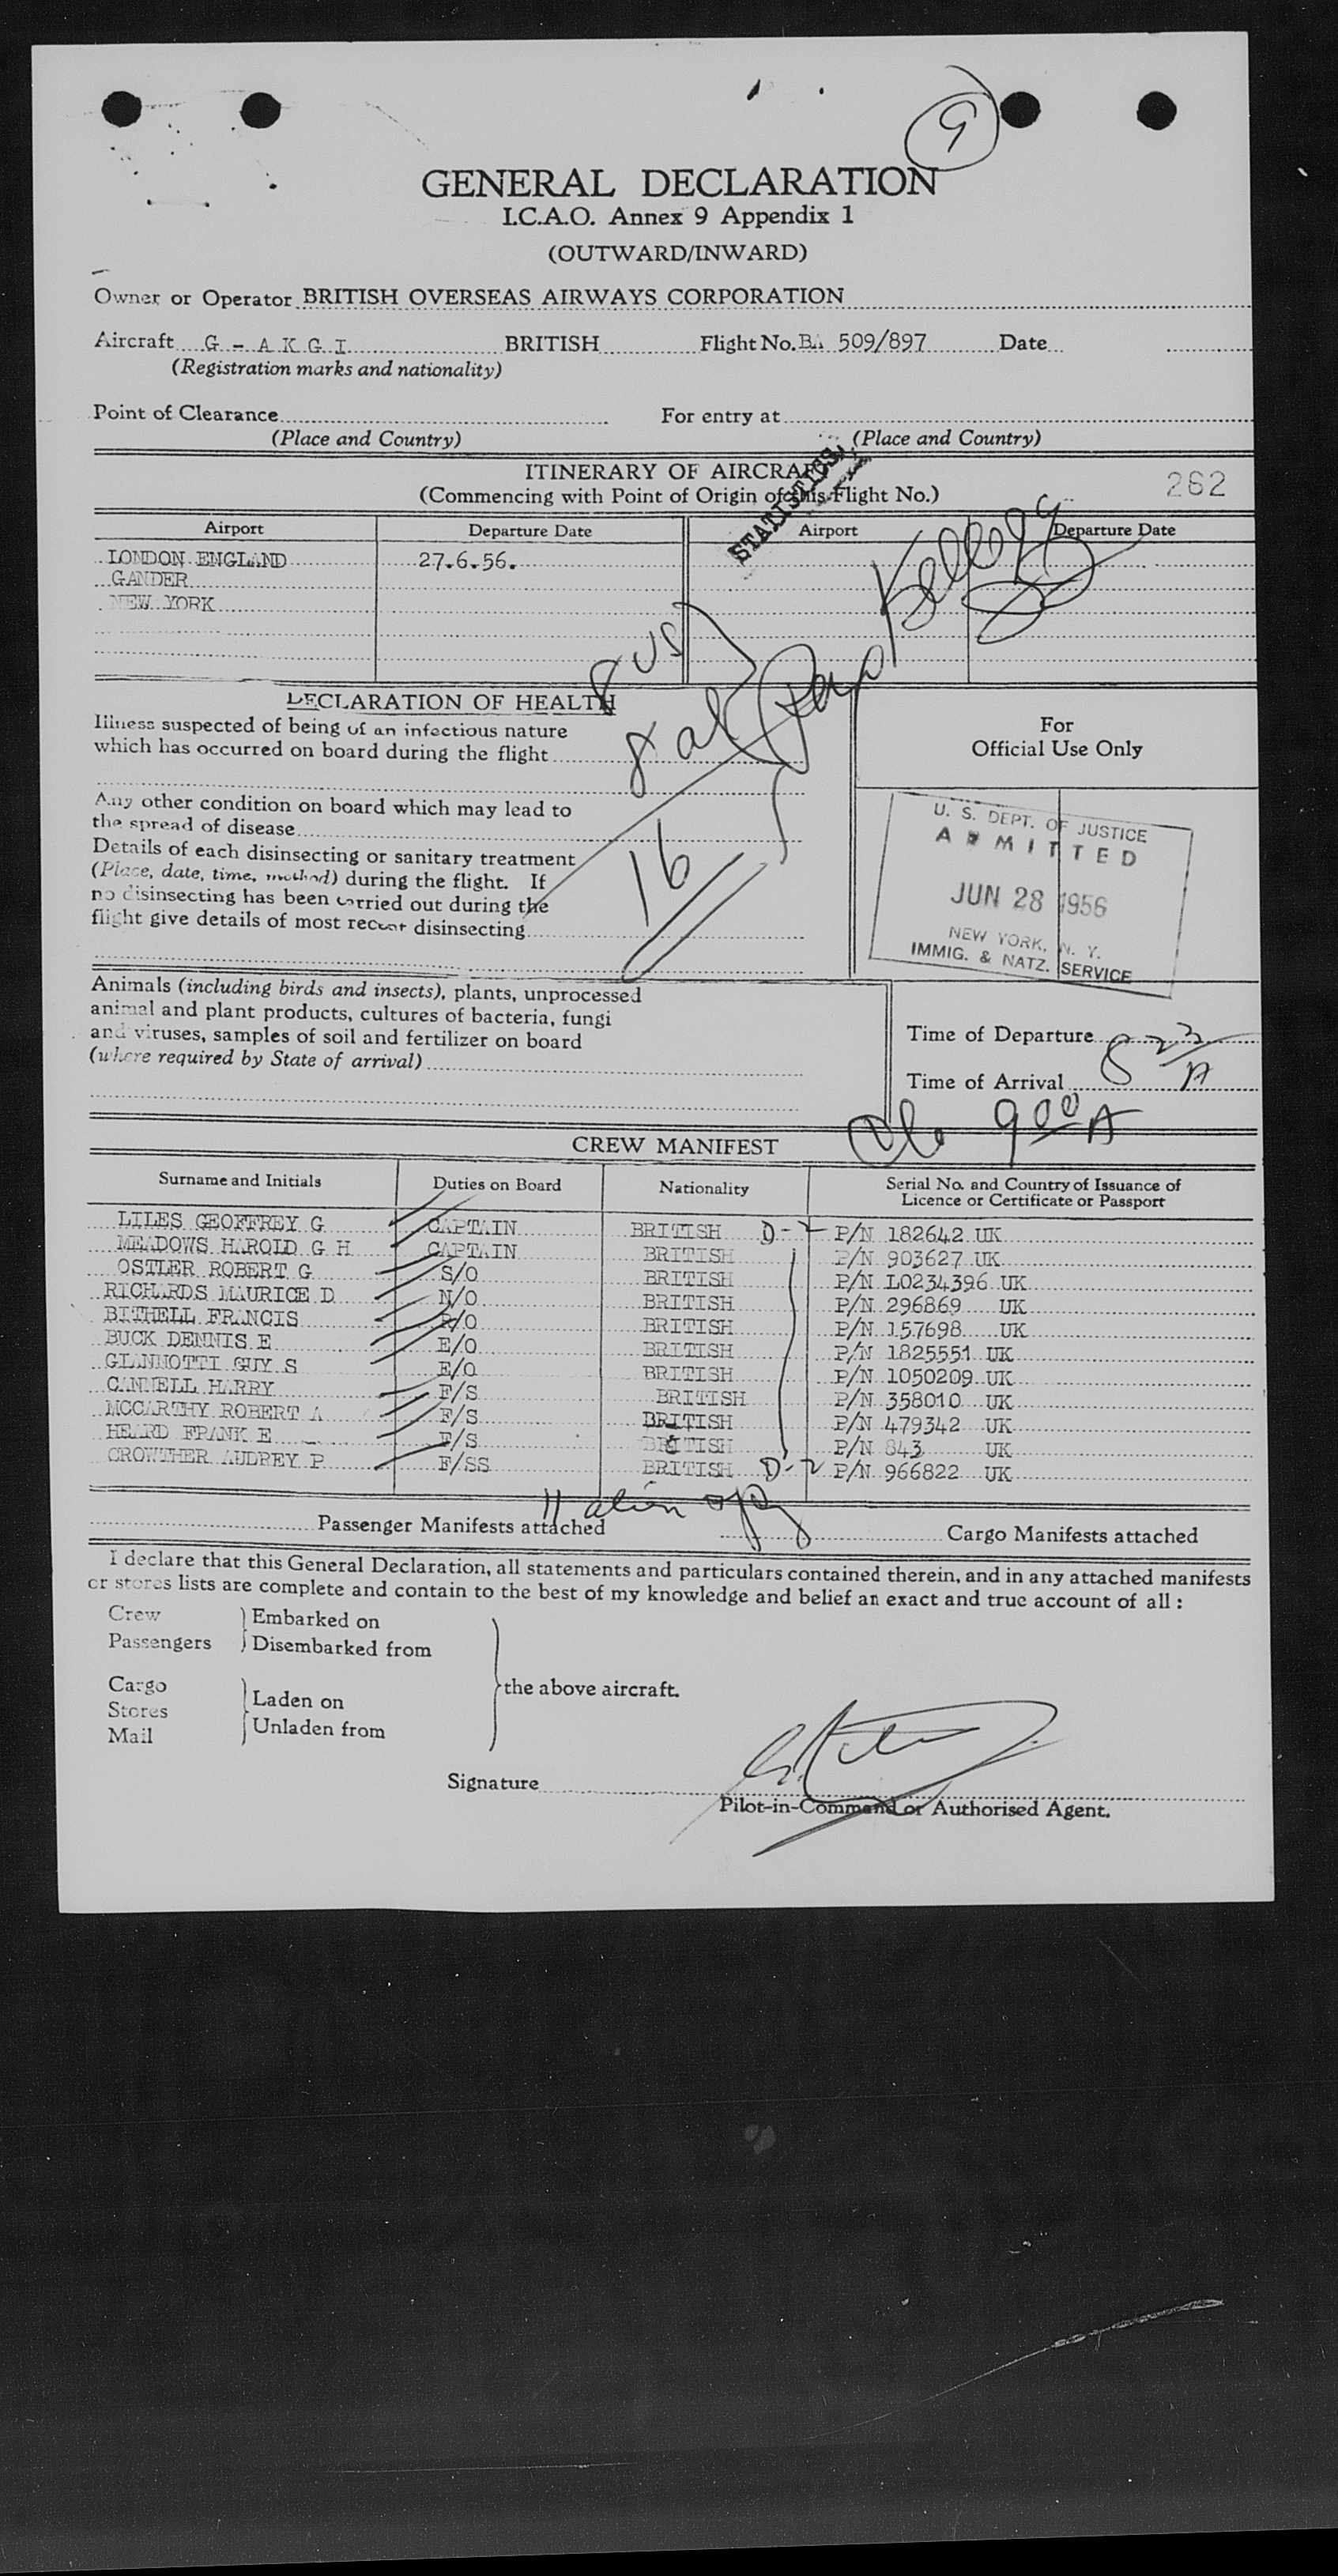 9
GENERAL DECLARATION
I.C.A.O. Annex 9 Appendix 1
(OUTWARD/INWARD)
Owner or Operator BRITISH OVERSEAS AIRWAYS CORPORATION
Aircraft G - A K G I BRITISH Flight No. BA 509/897 Date
(Registration marks and nationality)
Point of Clearance For entry at
(Place and Country) (Place and Country)
STATISTICS
ITINERARY OF AIRCRAFT
262
(Commencing with Point of Origin of this Flight No.)
Airport Departure Date Airport Departure Date
LONDON ENGLAND 27.6.56.
GANDER
NEW YORK
Kellogg
8 US
8 al
16
DECLARATION OF HEALTH
Illness suspected of being of an infectious nature
which has occurred on board during the flight
Any other condition on board which may lead to
the spread of disease
Details of each disinsecting or sanitary treatment
(Place, date, time, method) during the flight. If
no disinsecting has been carried out during the
flight give details of most recent disinsecting
For
Official Use Only
U. S. DEPT. OF JUSTICE
ADMITTED
JUN 28 1956
NEW YORK, N. Y.
IMMIG. & NATZ. SERVICE
Animals (including birds and insects), plants, unprocessed
animal and plant products, cultures of bacteria, fungi
and viruses, samples of soil and fertilizer on board
(where required by State of arrival)
Time of Departure
Time of Arrival 8 23/A
900 A
CREW MANIFEST
Surname and Initials Duties on Board Nationality Serial No. and Country of Issuance of
Licence or Certificate or Passport
LILES GEOFFREY G CAPTAIN BRITISH D-2 P/N 182642 UK
MEADOWS HAROLD G H CAPTAIN BRITISH P/N 903627 UK
OSTLER ROBERT G S/O BRITISH P/N L0234396 UK
RICHARDS MAURICE D N/O BRITISH P/N 296869 UK
BITHELL FRANCIS R/O BRITISH P/N 157698 UK
BUCK DENNIS E E/O BRITISH P/N 1825551 UK
GIANNOTTI GUY S E/O BRITISH P/N 1050209 UK
CANNELL HARRY F/S BRITISH P/N 358010 UK
MCCARTHY ROBERT A F/S BRITISH P/N 479342 UK
HEARD FRANK E F/S BRITISH P/N 843 UK
CROWTHER AUDREY P F/SS BRITISH D-2 P/N 966822 UK
11 alien
Passenger Manifests attached Cargo Manifests attached
I declare that this General Declaration, all statements and particulars contained therein, and in any attached manifests
or stores lists are complete and contain to the best of my knowledge and belief an exact and true account of all :
Crew Embarked on
Passengers Disembarked from
Cargo
Stores Laden on the above aircraft.
Mail Unladen from
Signature
Pilot-in-Command or Authorised Agent.